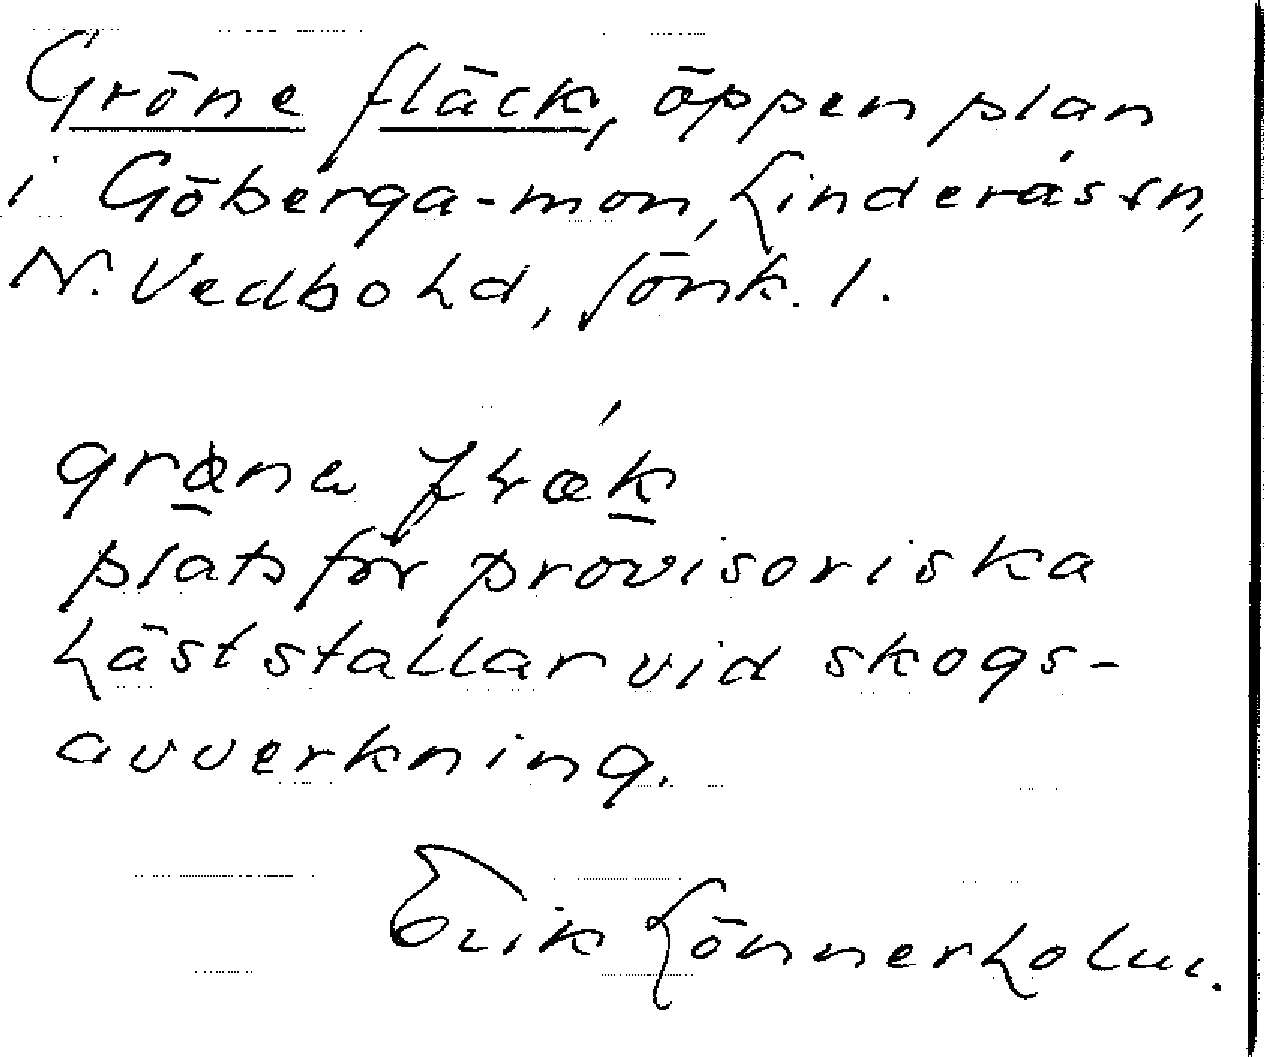 Gröne fläck, öppen plan
i Göberga-mon, Linderås sn,
N. Vedbo hd, Jönk. l.
plats för provisoriska
häststallar vid skogs-
avverkning.
Erik Lönnerholm.